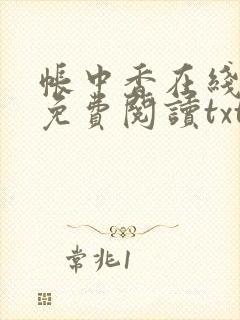 帳中香在綫
免費閱讀txt
常兆1